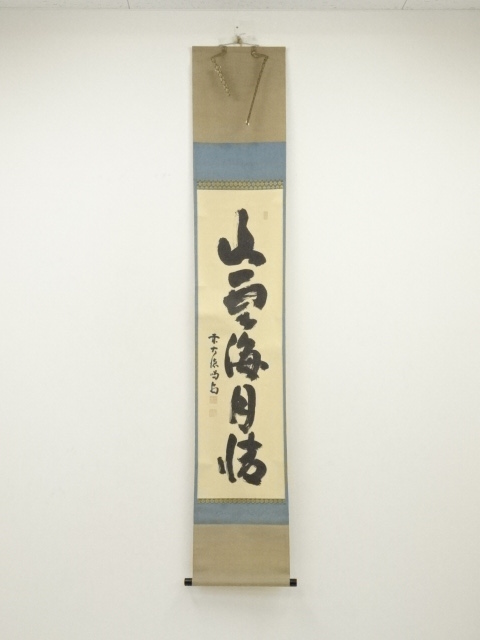 山雲海月情